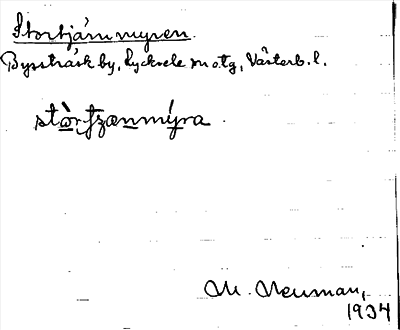 Stortjärnmyren.
Bysträsk by, Lycksele m o tg, Västerb. l.
stò̱r,tʒænmýra.
M. Neuman,
1934